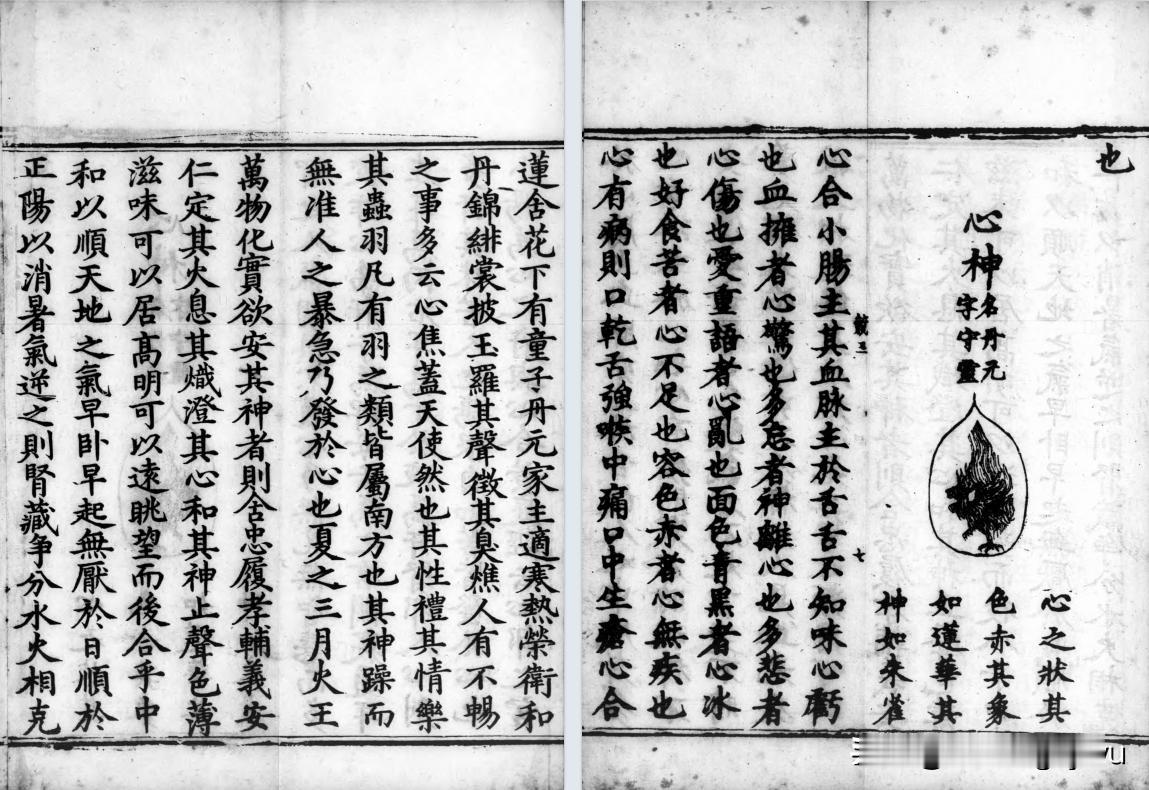 也
心神
名丹元
字守靈
心之狀其
色赤其象
如蓮華其
神如朱雀
七
心合小腸主其血脉主於舌舌不知味心虧
也血擁者心驚也多忘者神離心也多悲者
心傷也愛重語者心亂也面色青黑者心冰
也好食苦者心不足也容色赤者心無疾也
心有病則口乾舌強喉中痛口中生瘡心合
蓮含花下有童子丹元家主適寒熱榮衛和
丹錦緋裳披玉羅其聲徵其臭燋人有不暢
之事多云心焦蓋天使然也其性禮其情樂
其蟲羽凡有羽之類皆屬南方也其神躁而
無准人之暴急乃發於心也夏之三月火王
萬物化實欲安其神者則含忠履孝輔義安
仁定其火息其熾澄其心和其神上聲色薄
滋味可以居高明可以遠眺望而後合乎中
和以順天地之氣早卧早起無厭於日順於
正陽以消暑氣逆之則腎藏爭分水火相克